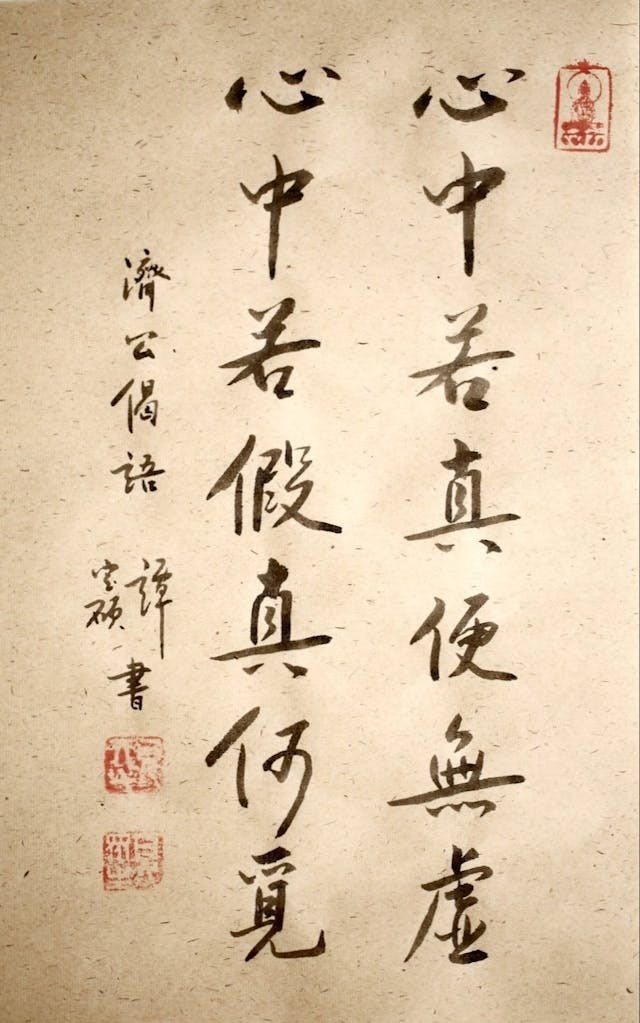 心中若真便無虛
心中若假真何覓
濟公偈語
譚
書